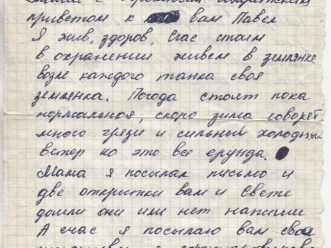 приветом к вам Павел
Я жив, здоров, счас стоим
в охранении живем в землянке
возле каждого танка своя
землянка. Погода стоит пока
нормальная, скоро зима говорят
много грязи и сильный холодный
ветер но это все ерунда.
Мама я посылал письмо и
две открытки вам и Свете
дошли они или нет напиши
А счас я посылаю вам